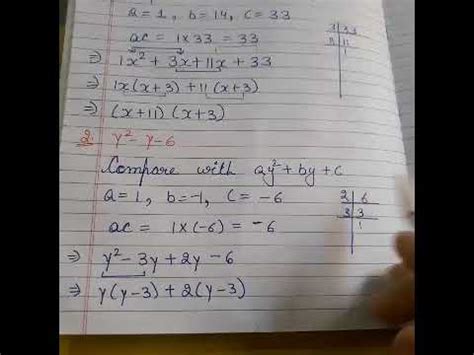 a = 1, b = 14, c = 33
ac = 1 x 33 = 33
⇒ 1x² + 3x + 11x + 33
⇒ 1x(x+3) + 11(x+3)
⇒ (x+11) (x+3)
3 33
11 11
1
2. y² - y - 6
Compare with ay² + by + c
a = 1, b = -1, c = -6
ac = 1 x (-6) = -6
2 6
3 3
1
⇒ y² - 3y + 2y - 6
⇒ y(y-3) + 2(y-3)